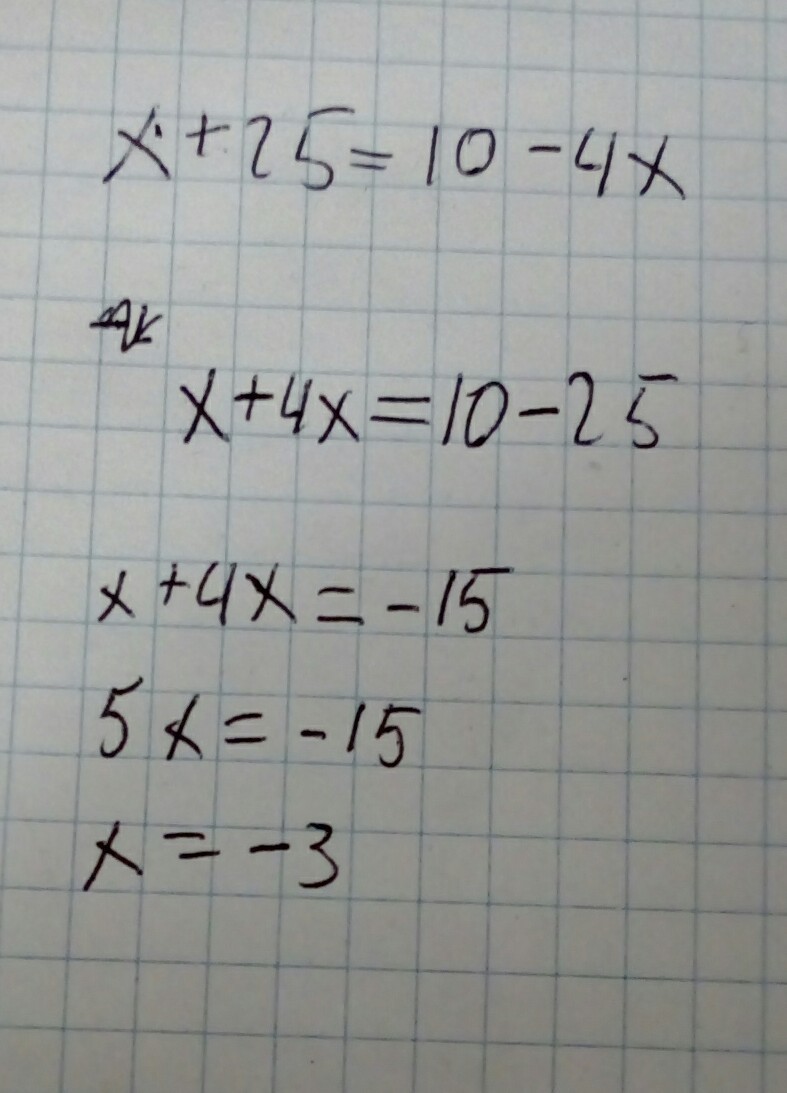 x+25=10-4x
x+4x=10-25
x+4x=-15
5x=-15
x=-3